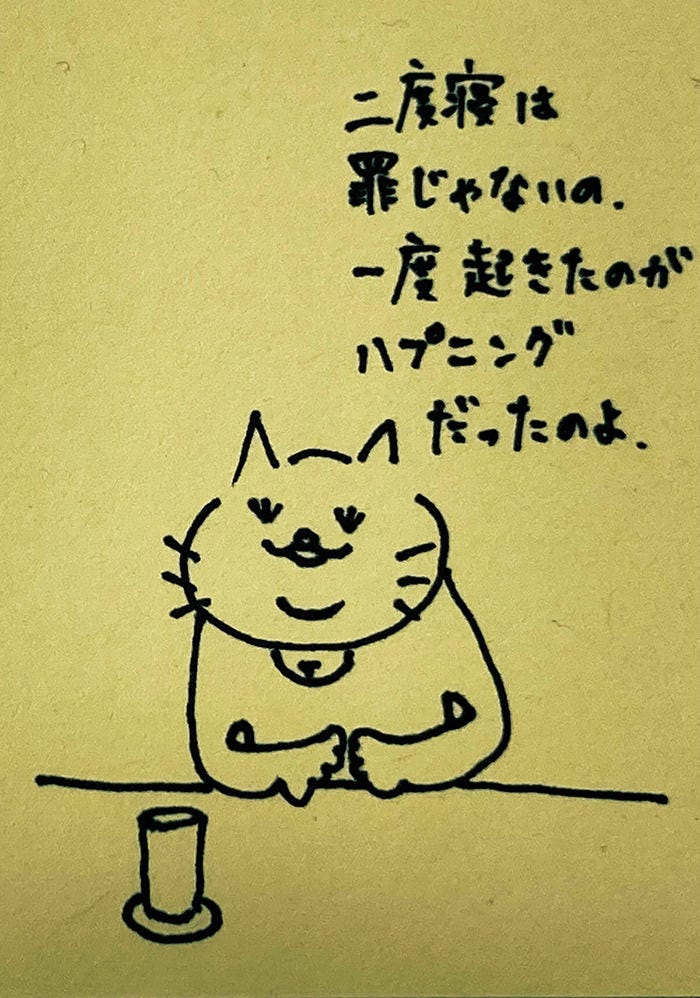 二度寝は
罪じゃないの.
一度起きたのが
ハプニング
だったのよ.